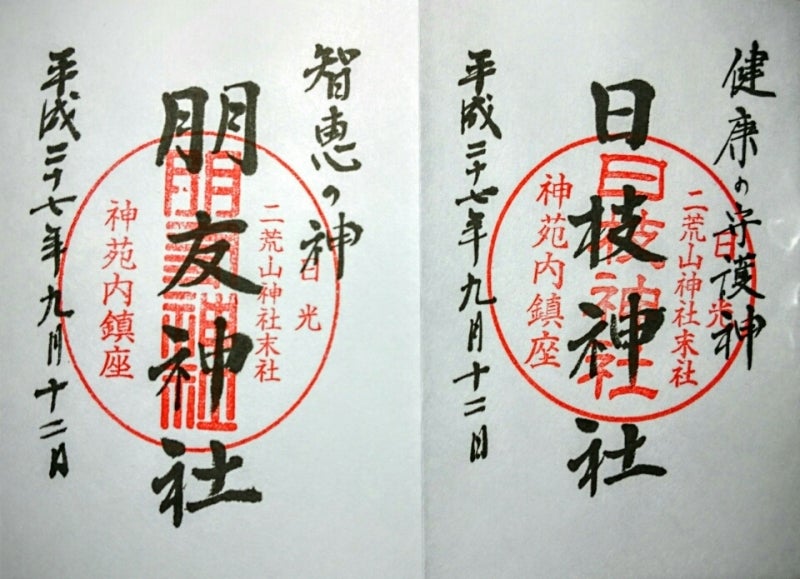 健康の守護神
日光
二荒山神社末社
日枝神社
日枝神社
神苑内鎮座
平成二十七年九月十二日
智恵の神
日光
二荒山神社末社
朋友神社
朋友神社
神苑内鎮座
平成二十七年九月十二日